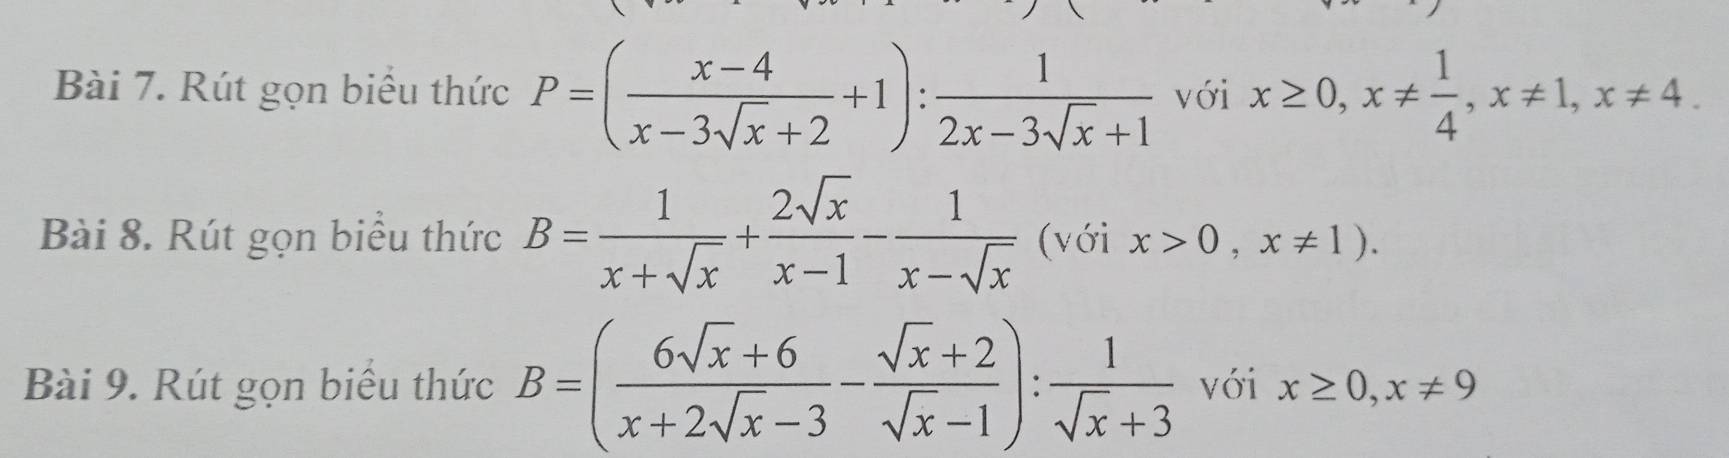 Bài 7. Rút gọn biểu thức P = ( (x − 4)/(x − 3√x + 2) + 1 ) : 1/(2x − 3√x + 1) với x ≥ 0, x ≠ 1/4, x ≠ 1, x ≠ 4 .
Bài 8. Rút gọn biểu thức B = 1/(x + √x) + 2√x/(x − 1) − 1/(x − √x) (với x > 0 , x ≠ 1 ).
Bài 9. Rút gọn biểu thức B = ( (6√x + 6)/(x + 2√x − 3) − (√x + 2)/(√x − 1) ) : 1/(√x + 3) với x ≥ 0, x ≠ 9